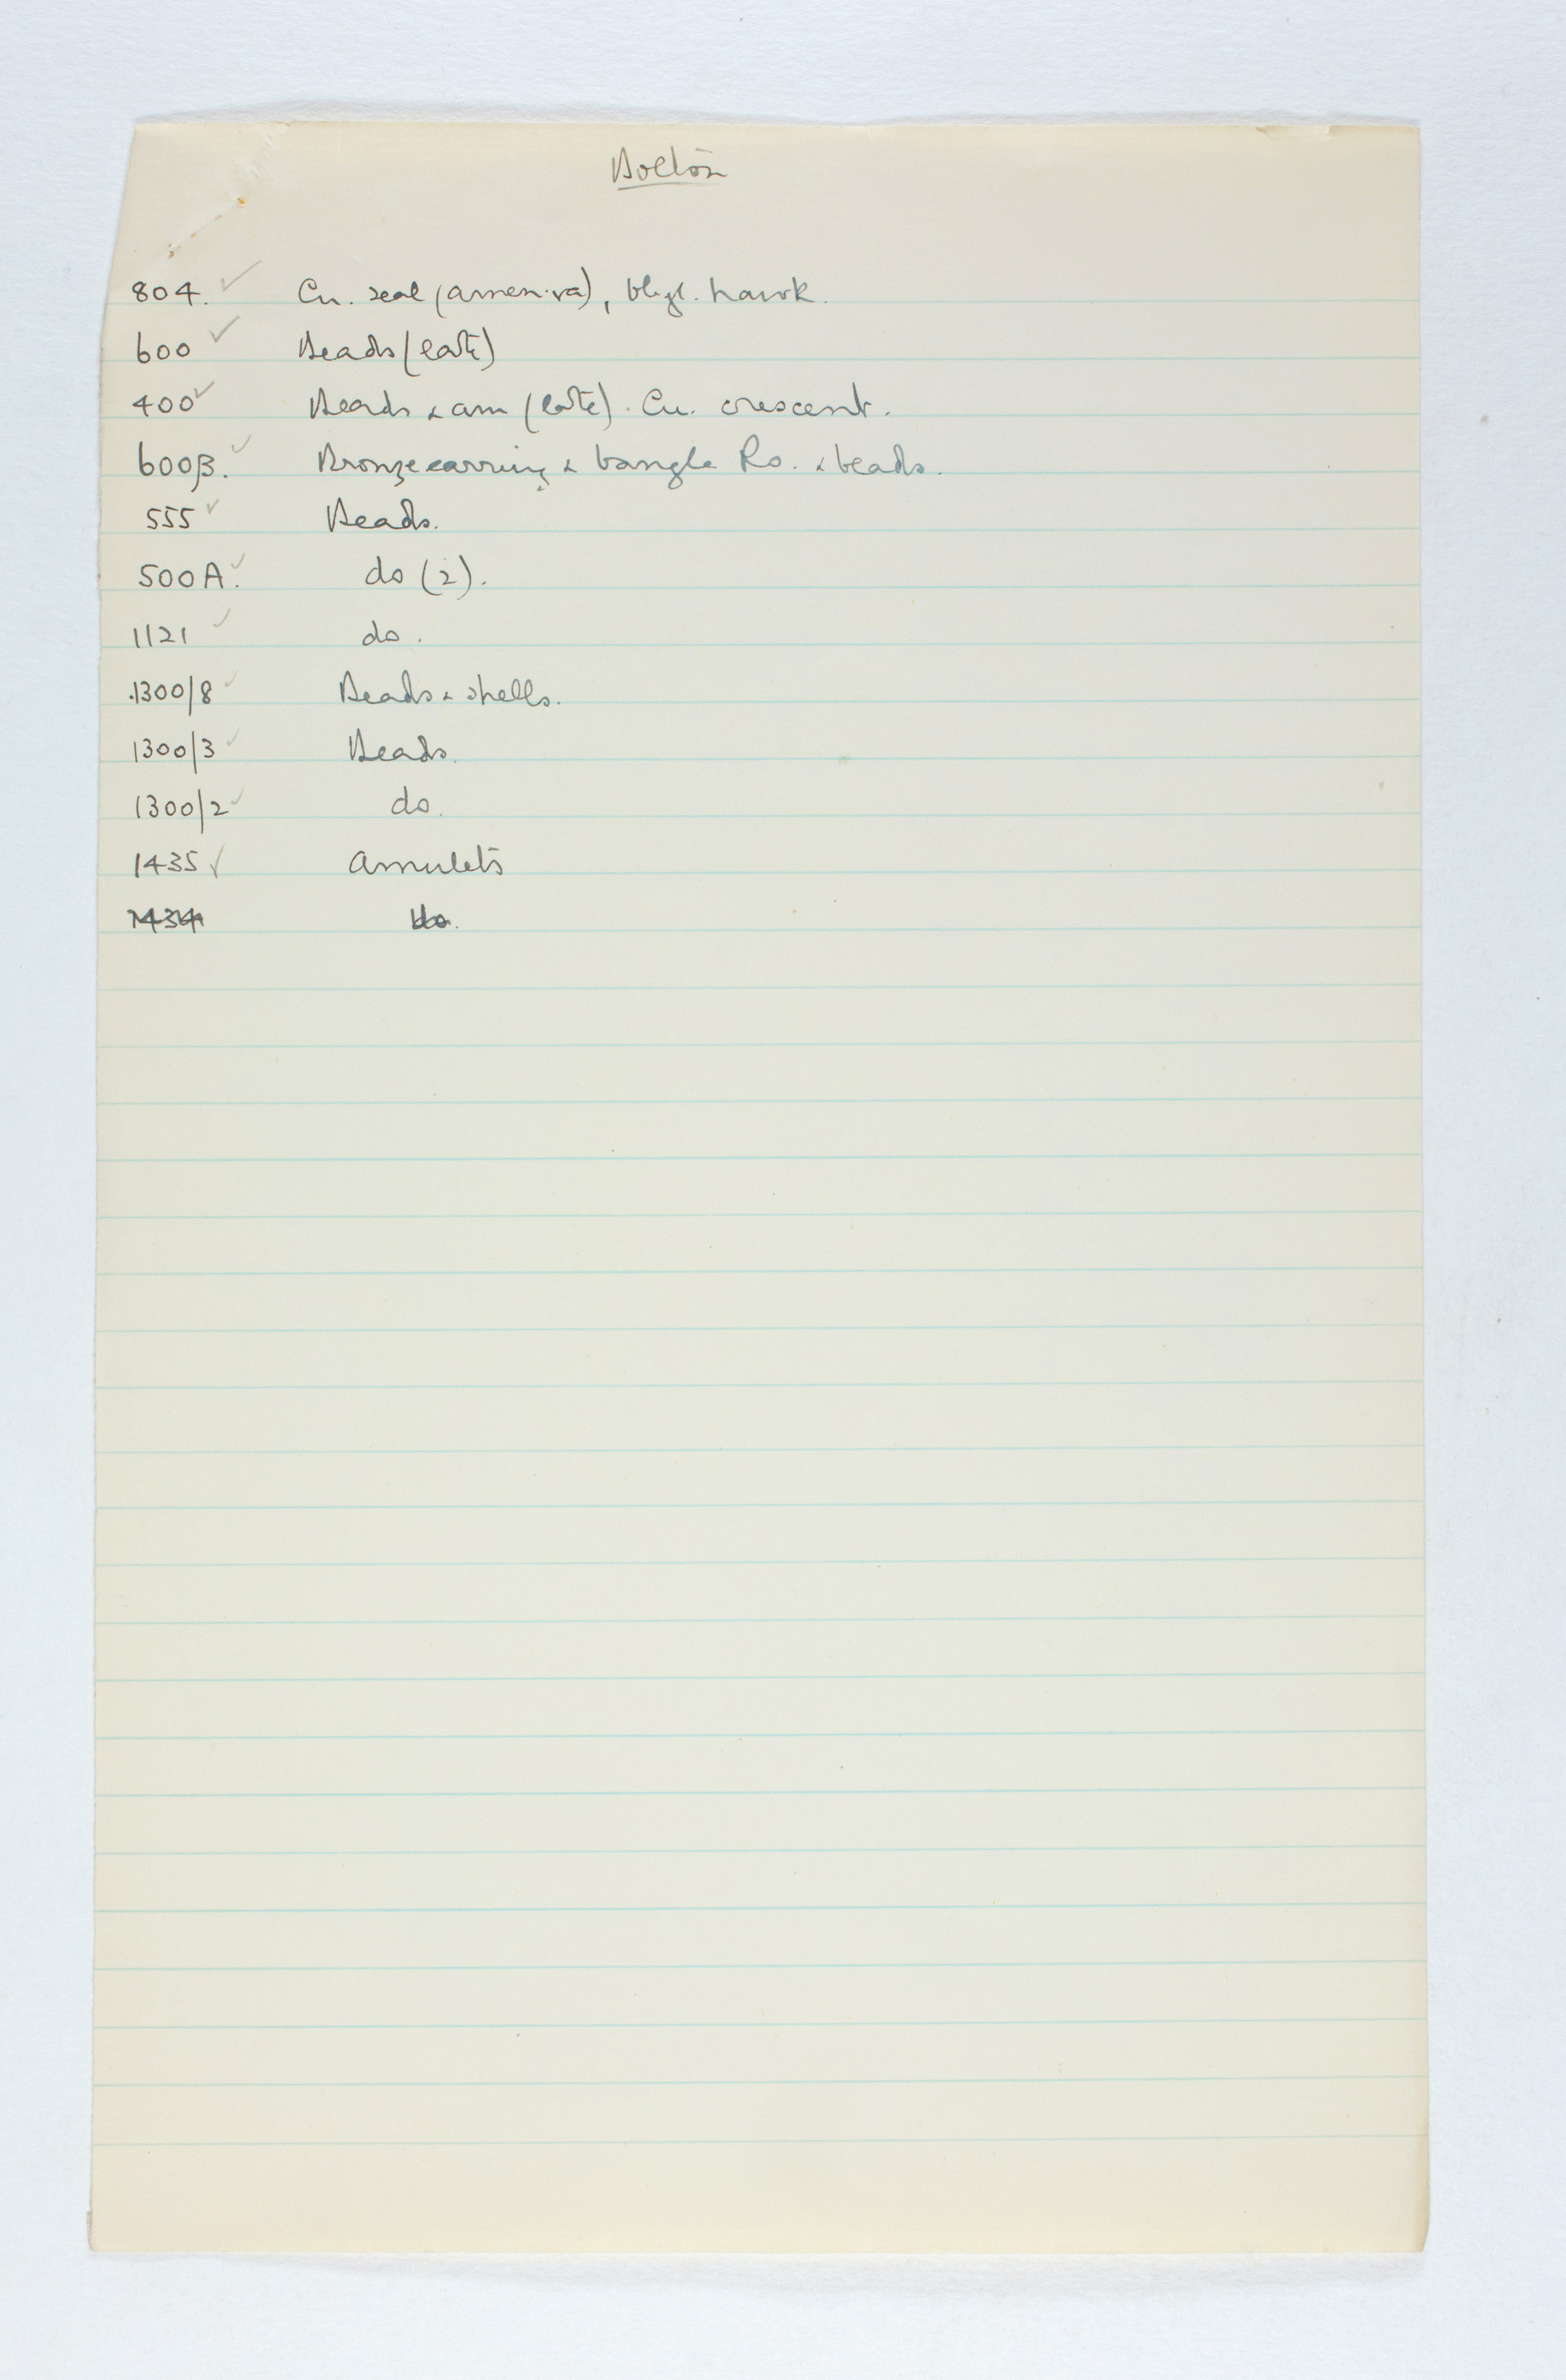 Bolton
804. ✓ Cu. seal (Amen-ra), bl.gl. hawk.
600 ✓ Beads (late)
400 ✓ Beads & am (late). Cu. crescent.
600B. ✓ Bronze earring & bangle Ro. & beads.
555 ✓ Beads.
500A. ✓ do (2).
1121 ✓ do.
1300/8 ✓ Beads & shells.
1300/3 ✓ Beads.
1300/2 ✓ do.
1435 ✓ Amulets
1434 do.